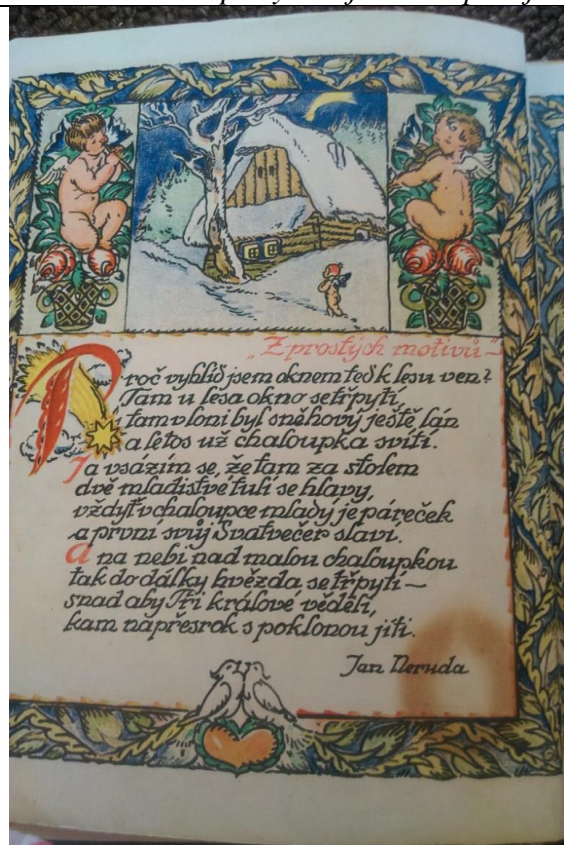 „Z prostých motivů“
Proč vyhlíd jsem oknem teď k lesu ven?
Tam u lesa okno se třpytí,
tam vloni byl sněhový ještě lán
a létos už chaloupka svítí.
Já vsázím se, že tam za stolem
dvě mladistvé tulí se hlavy,
vždyť v chaloupce mladý je páreček
a první svůj Svatvečer slaví.
A na nebi nad malou chaloupkou
tak do dálky hvězda se třpytí —
snad aby Tři králové věděli,
kam napřesrok s poklonou jíti.
Jan Neruda